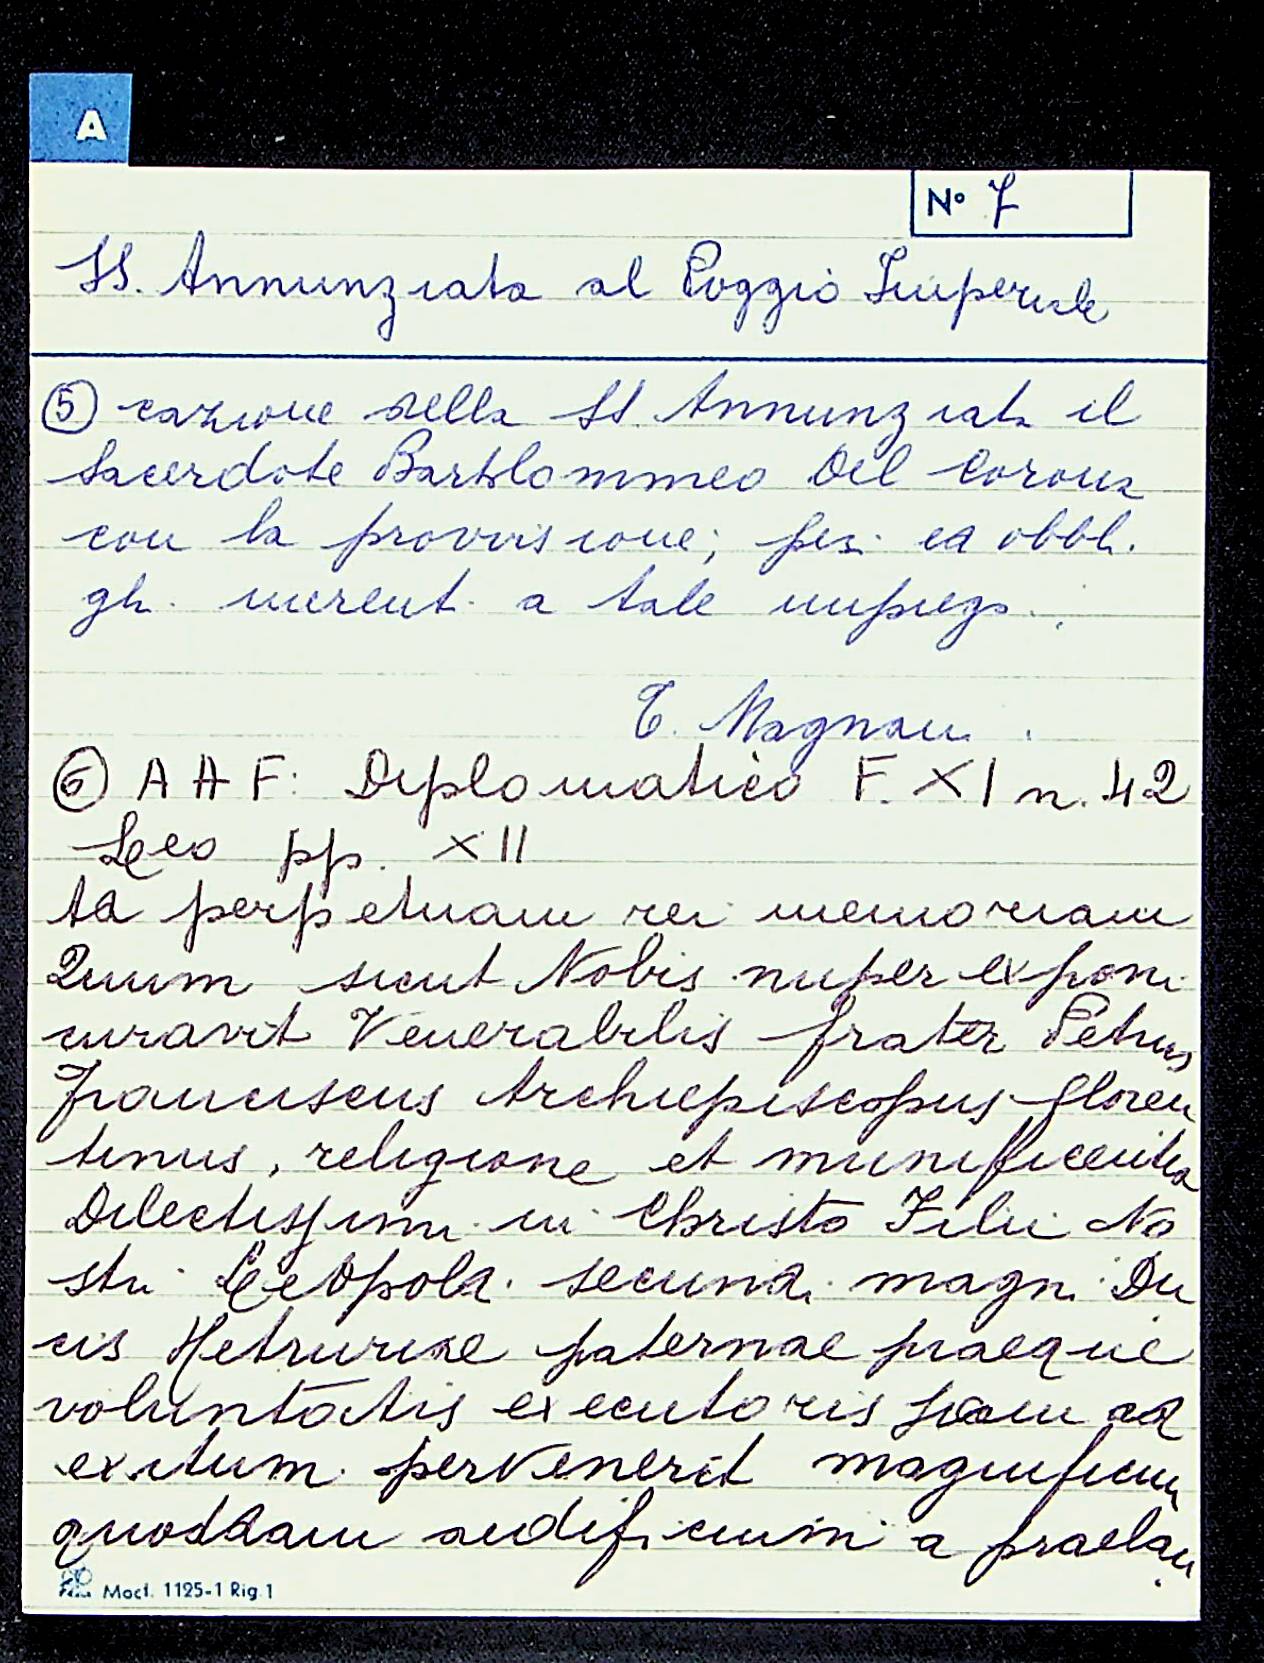 A
N° 7
SS. Annunziata al Poggio Imperiale
5 cazione della SS. Annunziata il
Sacerdote Bartolommeo Del Corona
con la provvisione; pesi ed obbl.
gh. inerent. a tale impiego.
T. Magnani.
6 AAF: Diplomatico F. XI n. 42
Leo pp. XII
Ad perpetuam rei memoriam
Quum sicut Nobis nuper exponi
curavit Venerabilis frater Petrus
Franciscus Archiepiscopus Floren
tinus, religione et munificentia
Dilectissimi in Christo Filii No
stri Leopoldi secundi magni Du
cis Hetruriae paternae piaeque
voluntatis executoris jam ad
exitum pervenerit magnificum
quoddam aedificium a praelau
Mod. 1125-1 Rig. 1